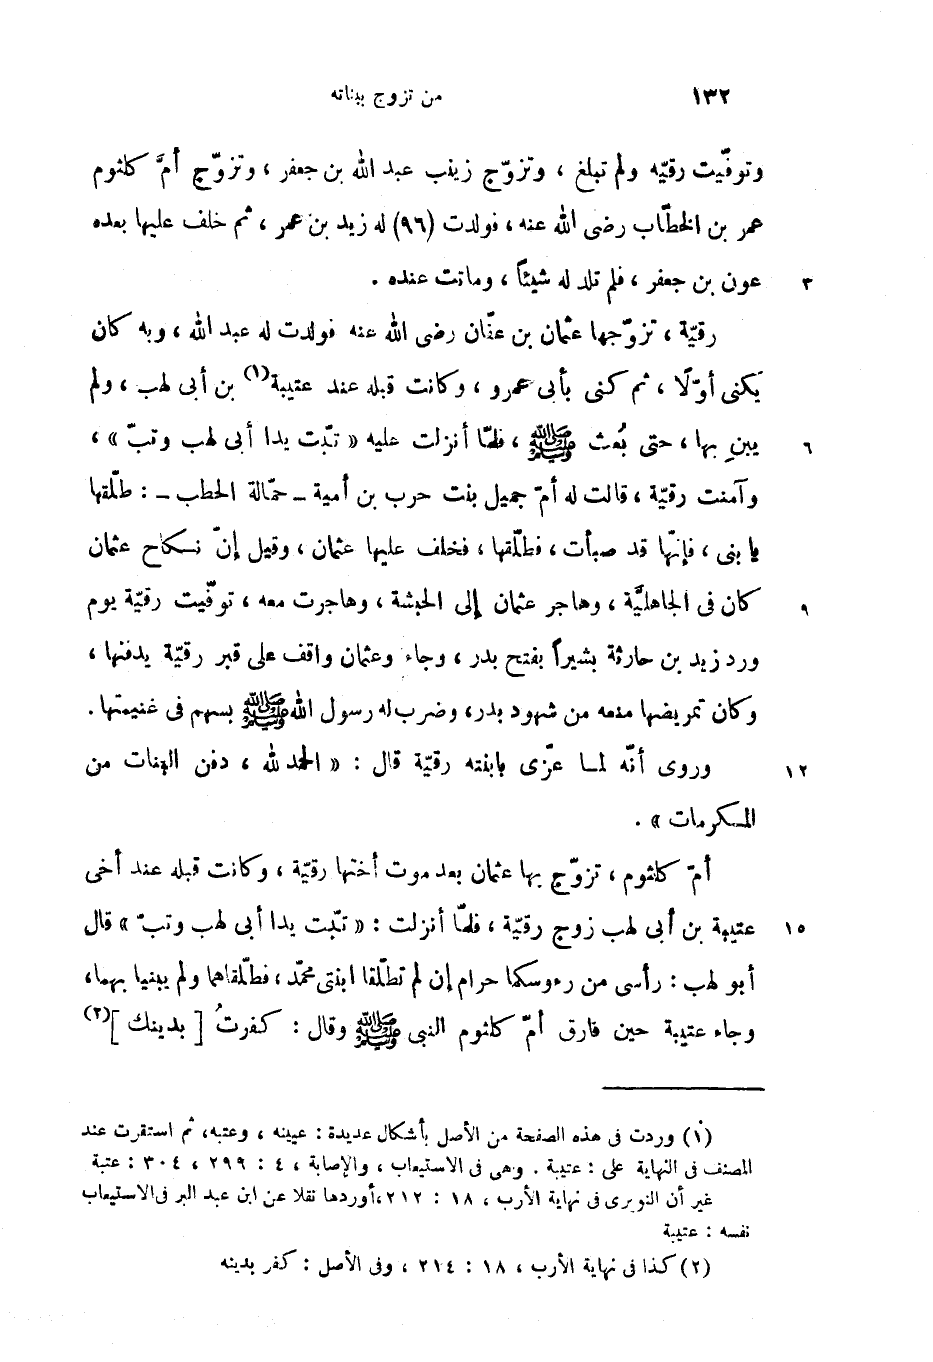 ١٣٢ من تزوج ببناته
وتوفّيت رقيّه ولم تبلغ ، وتزوّج زينب عبد الله بن جعفر ، وتزوّج أمَّ كلثوم
عمر بن الخطّاب رضى الله عنه ، فولدت (٩٦) له زيد بن عمر ، ثم خلف عليها بعده
٣ عون بن جعفر ، فلم تلد له شيئاً ، وماتت عنده .
رقيّة ، تزوّجها عثمان بن عفّان رضى الله عنه فولدت له عبد الله ، وبه كان
يَكنى أوّلًا ، ثم كنى بأبى عمرو ، وكانت قبله عند عتيبة(١) بن أبى لهب ، ولم
٦ يبنِ بها ، حتى بُعث ﷺ ، فلمّا أنزلت عليه « تبّت يدا أبى لهب وتبّ » ،
وآمنت رقيّة ، قالت له أمّ جميل بنت حرب بن أمية ــ حمّالة الحطب ــ : طلّقها
يا بنى ، فإنّها قد صبأت ، فطلّقها ، فخلف عليها عثمان ، وقيل إنّ نكاح عثمان
٩ كان فى الجاهليَّة ، وهاجر عثمان إلى الحبشة ، وهاجرت معه ، توفّيت رقيّة يوم
ورد زيد بن حارثة بشيراً بفتح بدر ، وجاء وعثمان واقف على قبر رقيّة يدفنها ،
وكان تمريضها منعه من شهود بدر، وضرب له رسول الله ﷺ بسهم فى غنيمتها .
١٢ وروى أنّه لما عزّى بابنته رقيّة قال : « الحمد لله ، دفن البنات من
المكرمات » .
أمّ كلثوم ، تزوّج بها عثمان بعد موت أختها رقيّة ، وكانت قبله عند أخى
١٥ عتيبة بن أبى لهب زوج رقيّة ، فلمّا أنزلت : « تبّت يدا أبى لهب وتبّ » قال
أبو لهب : رأسى من رءوسكما حرام إن لم تطلّقا ابنتى محمّد ، فطلّقاهما ولم يبنيا بهما،
وجاء عتيبة حين فارق أمّ كلثوم النبى ﷺ وقال : كفرتُ [ بدينك ](٢)
(١) وردت فى هذه الصفحة من الأصل بأشكال عديدة : عيينه ، وعتبه، ثم استقرت عند
المصنف فى النهاية على : عتيبة . وهى فى الاستيعاب ، والإصابة ، ٤ : ٢٩٩ ، ٣٠٤ : عتبة
غير أن النويرى فى نهاية الأرب ، ١٨ : ٢١٢ ،أوردها نقلا عن ابن عبد البر فى الاستيعاب
نفسه : عتيبة
(٢) كذا فى نهاية الأرب ، ١٨ : ٢١٤ ، وفى الأصل : كفر بدينه